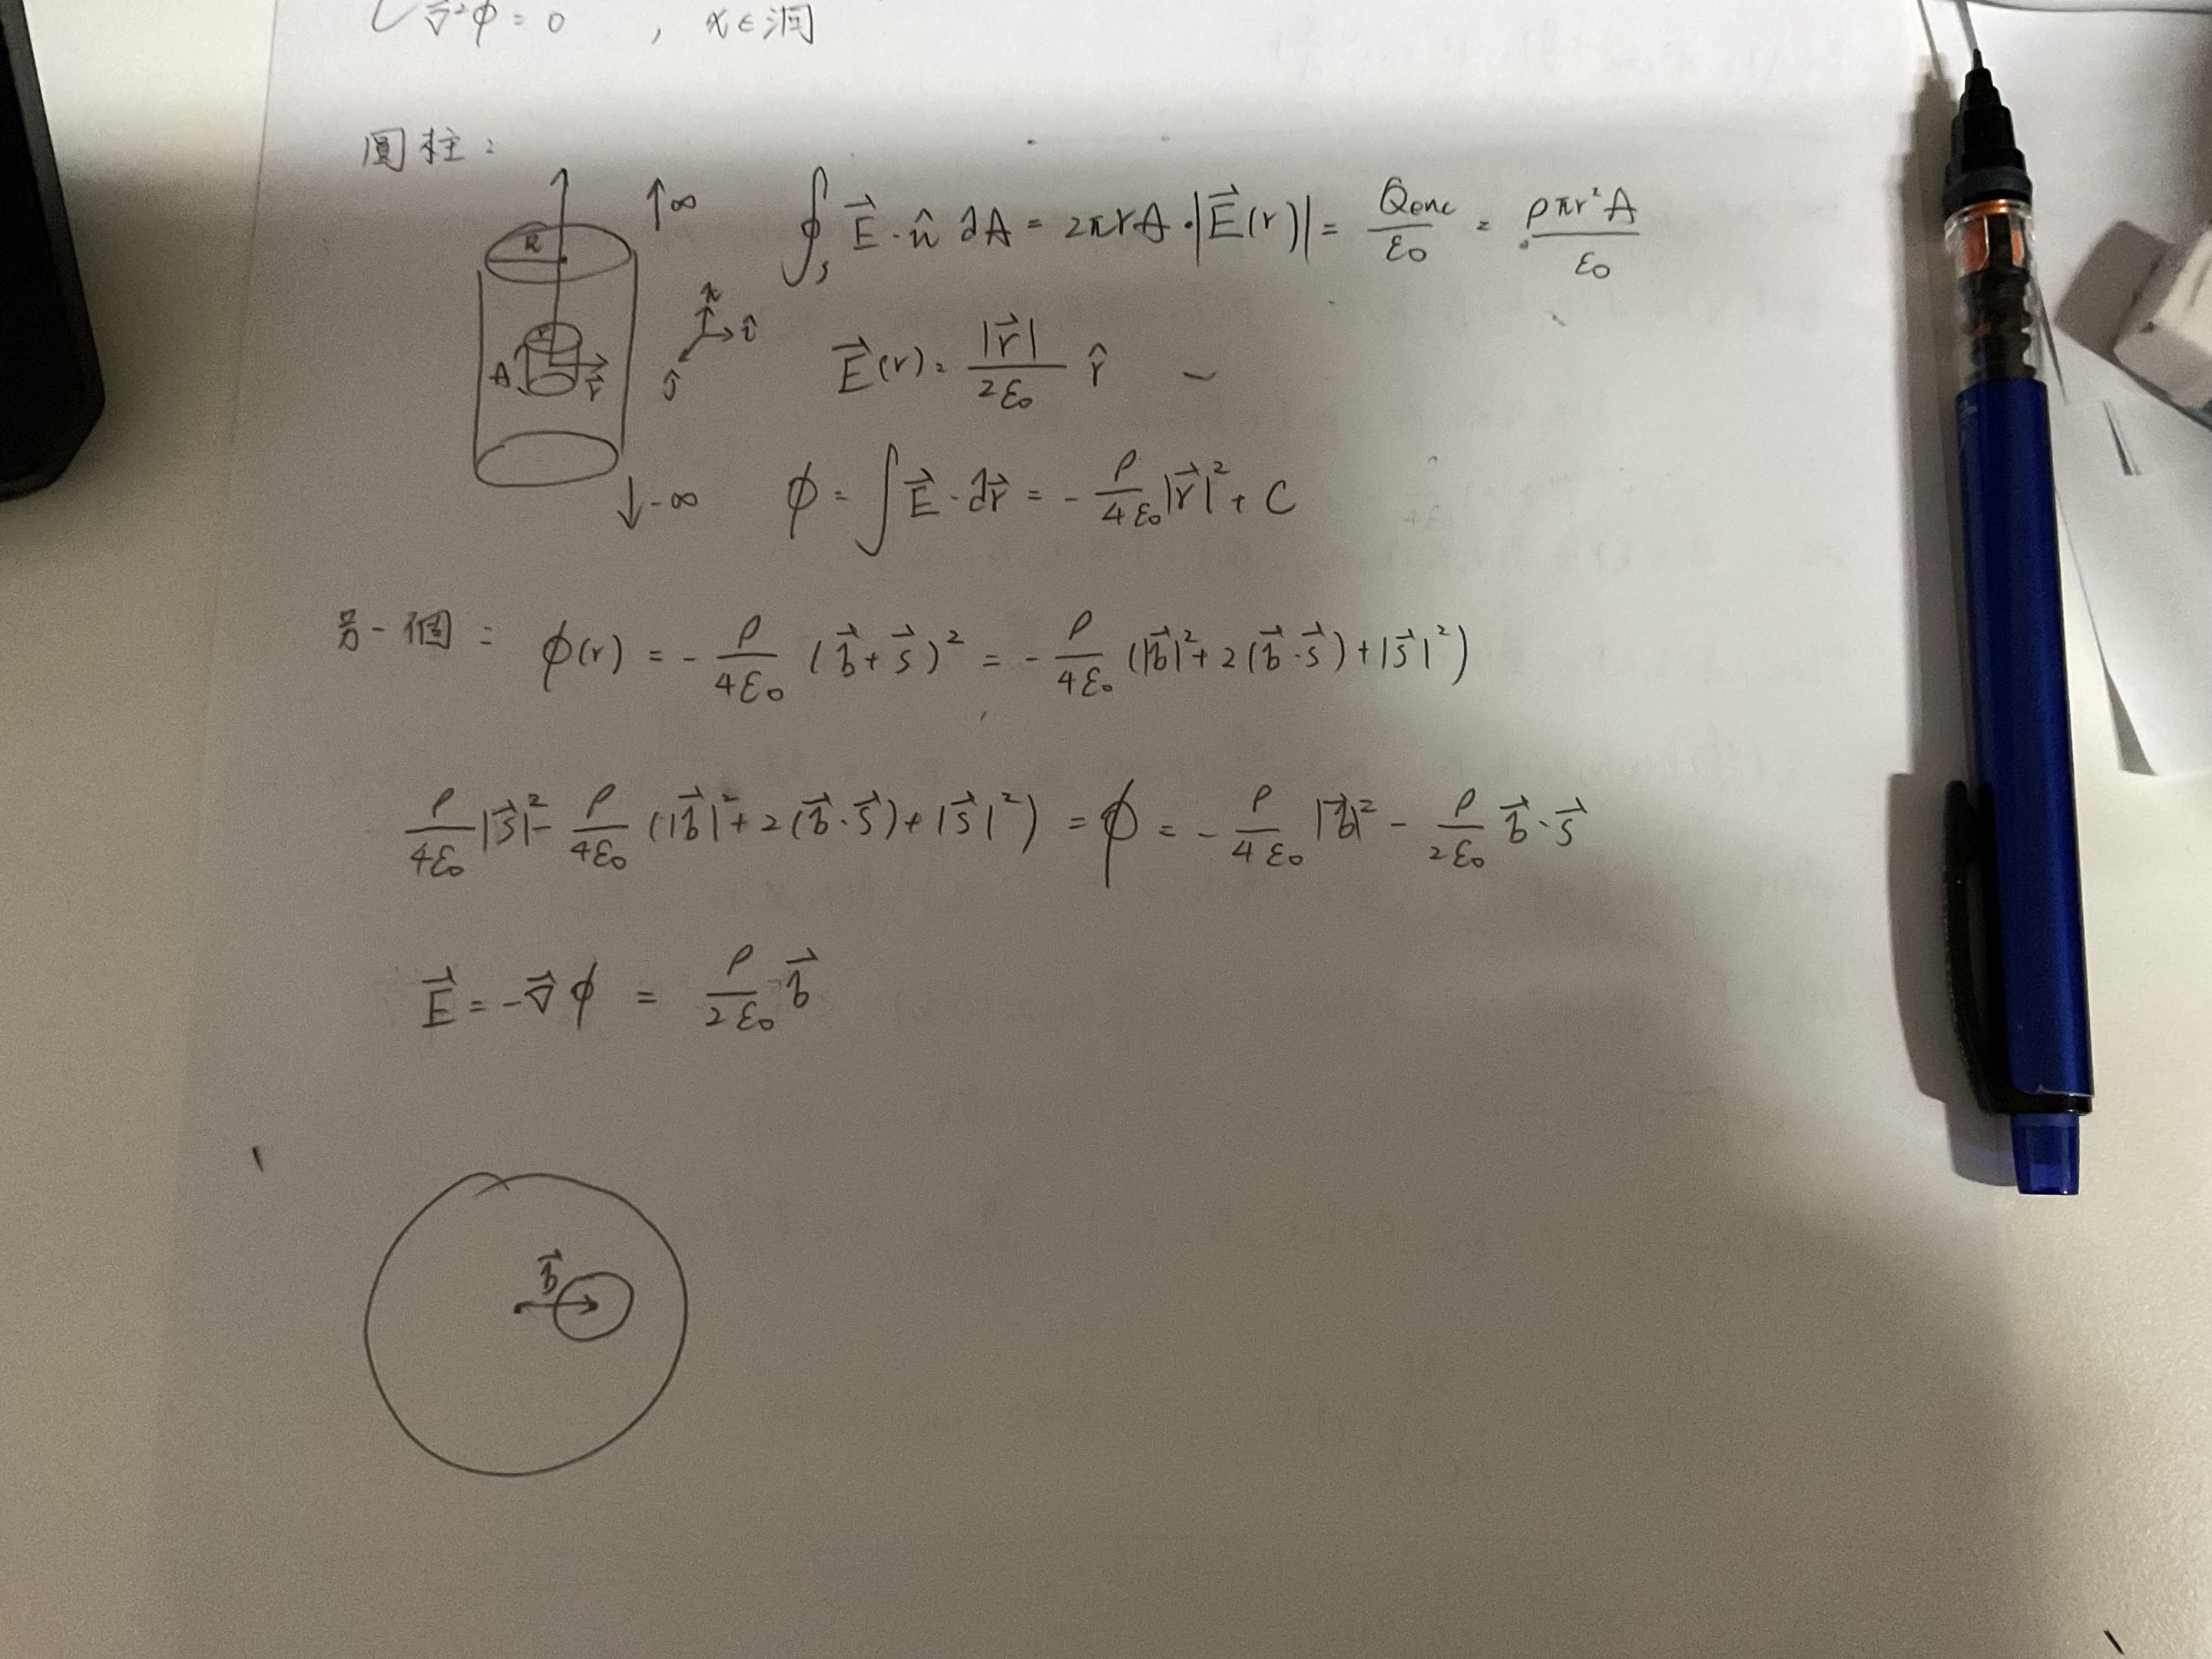 ∇²φ = 0 , x ∈ 洞
圓柱：
R
↑∞
∮ₛ E⃗ · n̂ dA = 2πrA · |E⃗(r)| = Qenc/ε₀ = ρπr²A/ε₀
r
A
r⃗
î
ĵ
E⃗(r) = |r⃗|/2ε₀ r̂
↓-∞
φ = ∫ E⃗ · dr⃗ = - ρ/4ε₀ |r⃗|² + C
另一個： φ(r) = - ρ/4ε₀ (b⃗ + s⃗)² = - ρ/4ε₀ (|b⃗|² + 2(b⃗ · s⃗) + |s⃗|²)
ρ/4ε₀ |s⃗|² - ρ/4ε₀ (|b⃗|² + 2(b⃗ · s⃗) + |s⃗|²) = φ = - ρ/4ε₀ |b⃗|² - ρ/2ε₀ b⃗ · s⃗
E⃗ = -∇⃗φ = ρ/2ε₀ b⃗
b⃗